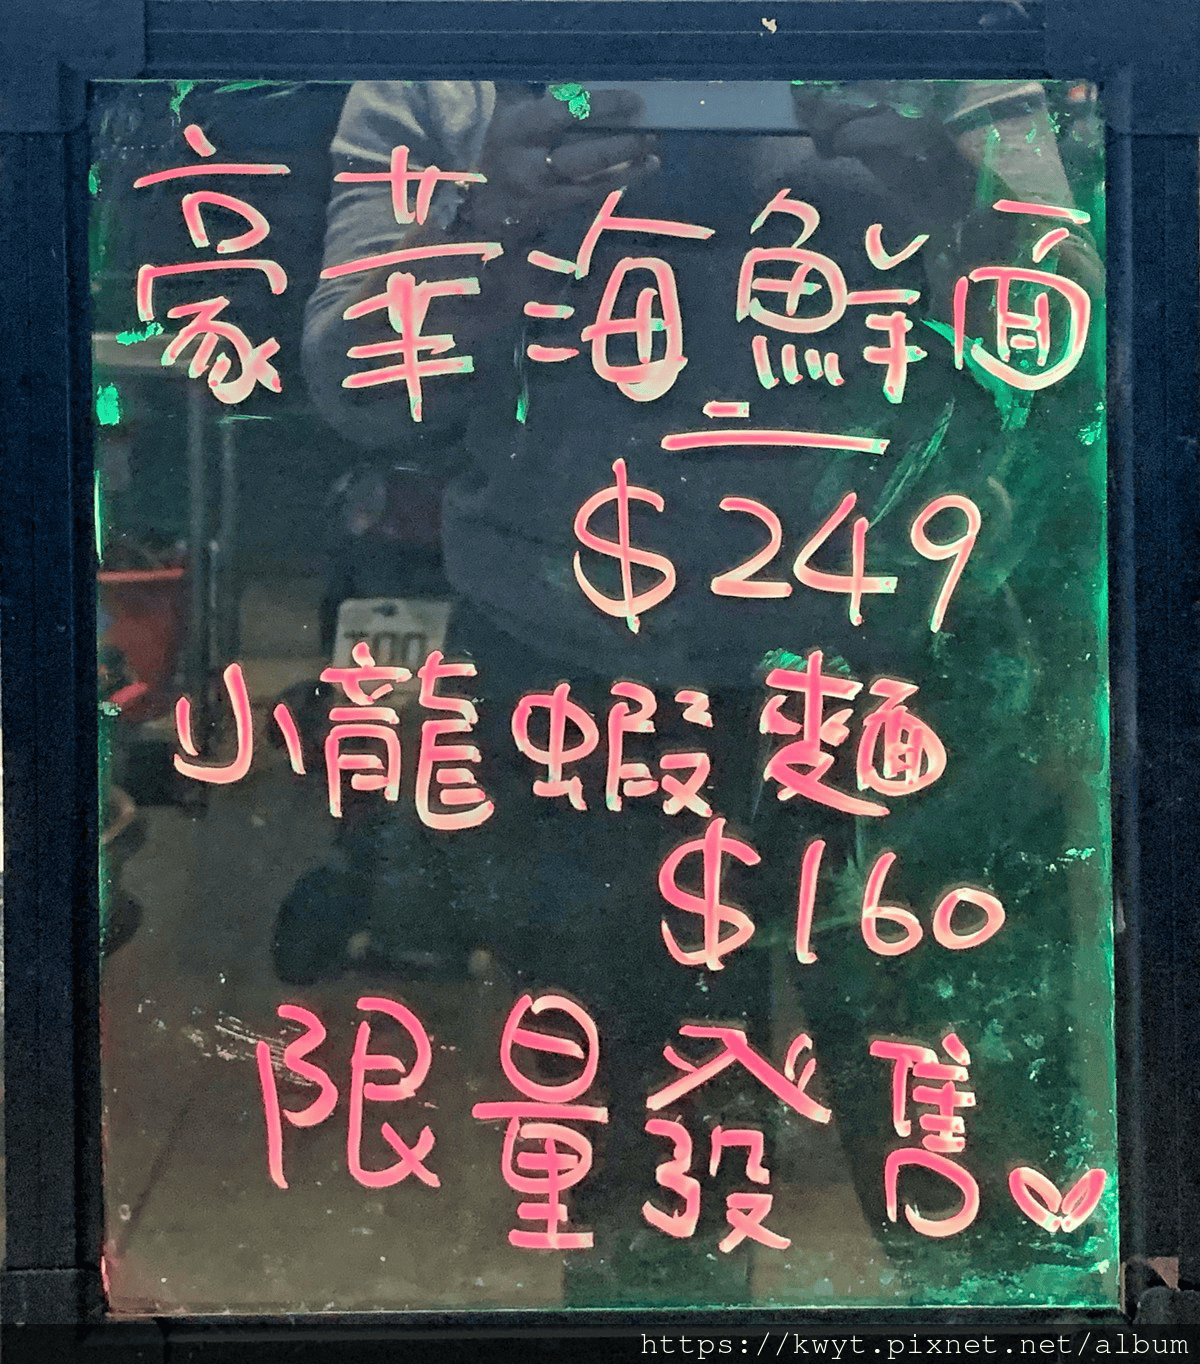 豪華海鮮面
$249
小龍蝦麵
$160
限量發售
https://kwyt.pixnet.net/album